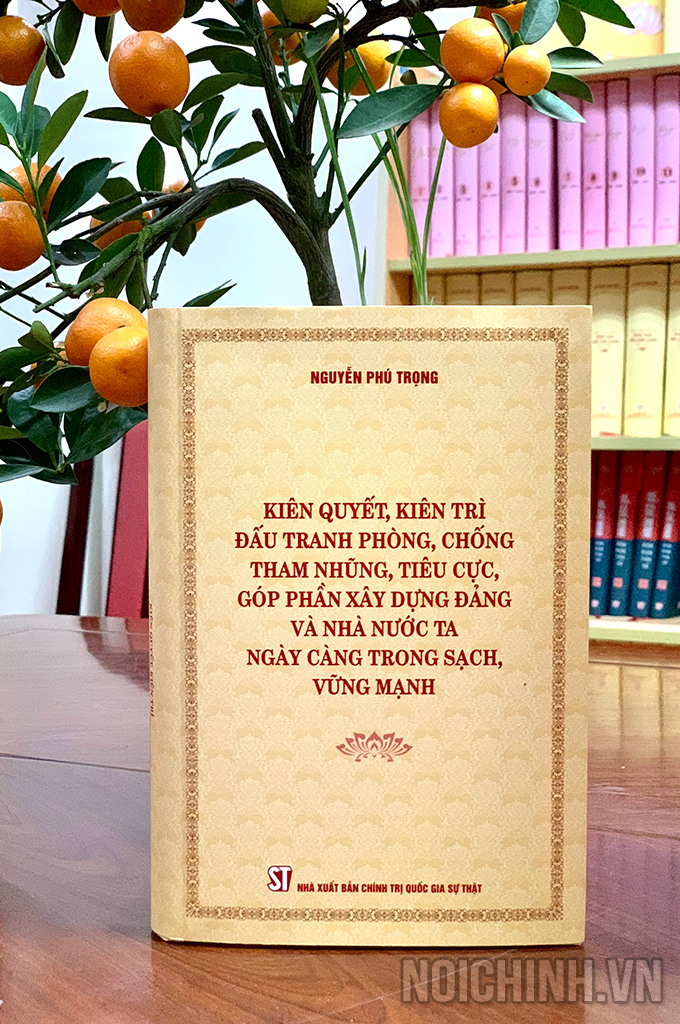 NGUYỄN PHÚ TRỌNG
KIÊN QUYẾT, KIÊN TRÌ
ĐẤU TRANH PHÒNG, CHỐNG
THAM NHŨNG, TIÊU CỰC,
GÓP PHẦN XÂY DỰNG ĐẢNG
VÀ NHÀ NƯỚC TA
NGÀY CÀNG TRONG SẠCH,
VỮNG MẠNH
ST NHÀ XUẤT BẢN CHÍNH TRỊ QUỐC GIA SỰ THẬT
NOICHINH.VN